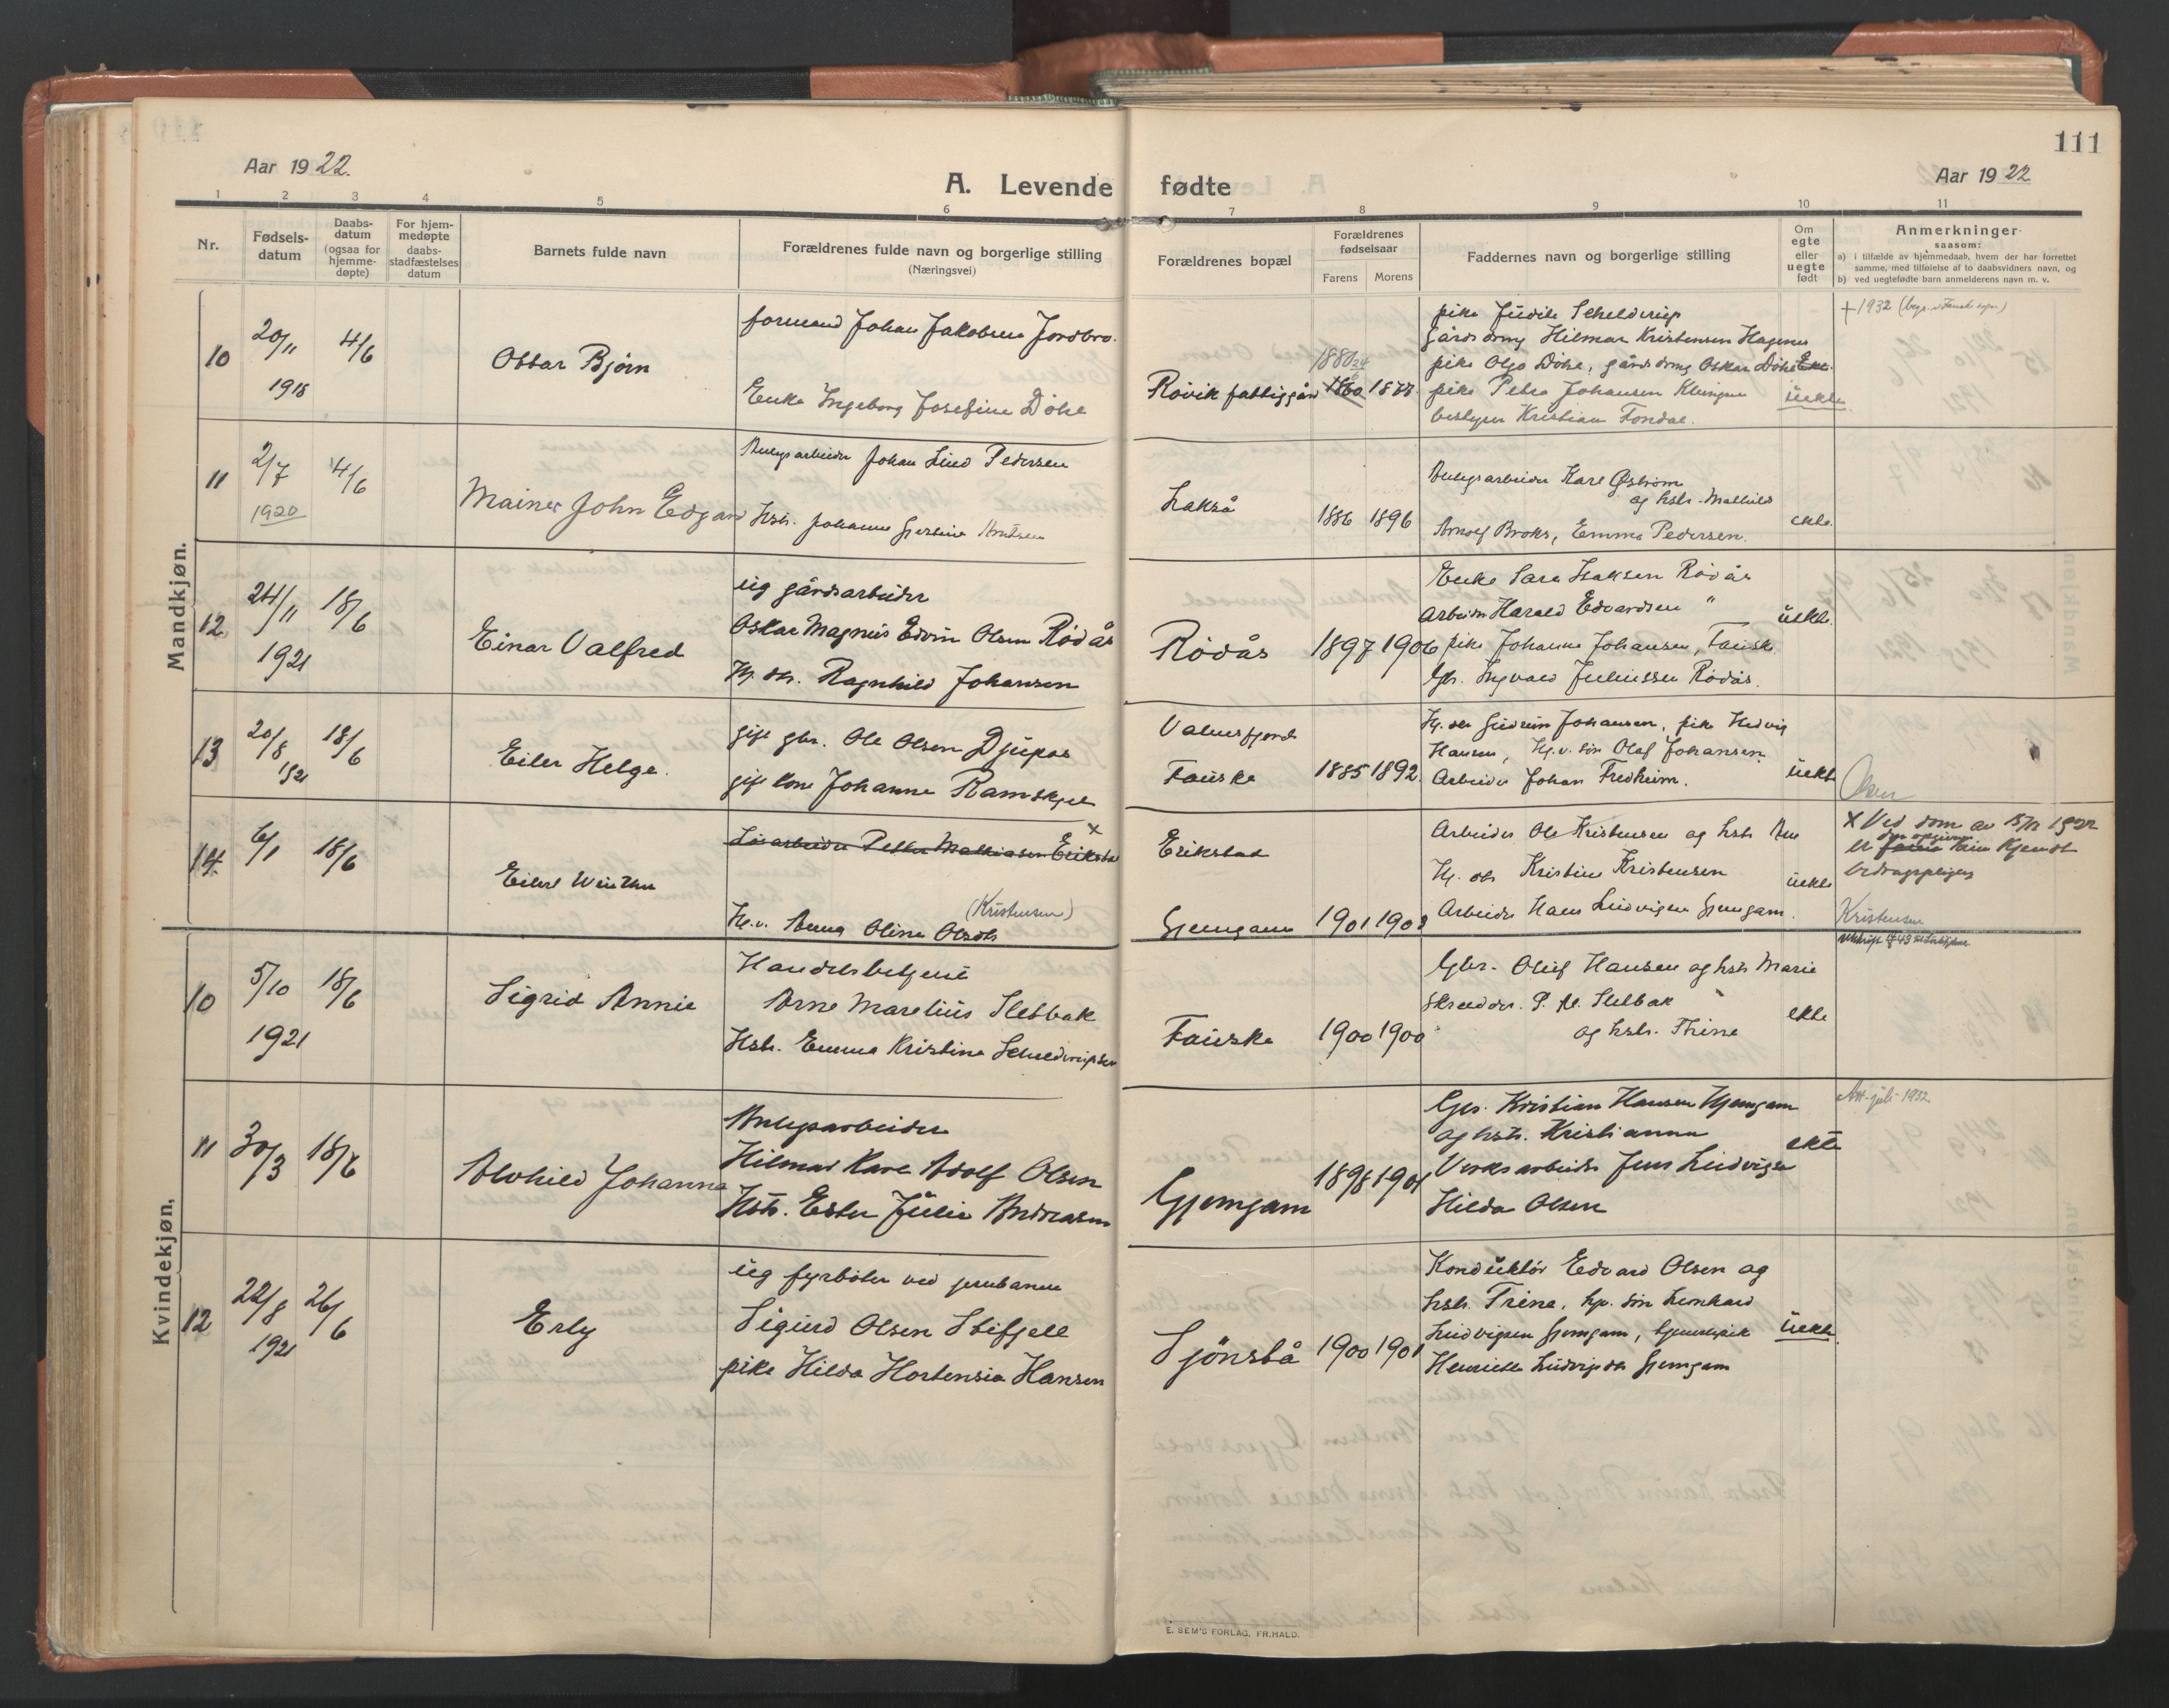 111
Aar 1922.
A. Levende fødte
Aar 1922
1 2 3 4 5 6 7 8 9 10 11
Nr.
Fødsels-
datum
Daabs-
datum
(ogsaa for
hjemme-
døpte)
For hjem-
medøpte
daabs-
stadfæstelses
datum
Barnets fulde navn
Forældrenes fulde navn og borgerlige stilling
(Næringsvei)
Forældrenes bopæl
Forældrenes
fødselsaar
Farens Morens
Faddernes navn og borgerlige stilling
Om
egte
eller
uegte
født
Anmerkninger
saasom:
a) i tilfælde av hjemmedaab, hvem der har forrettet
samme, med tilføielse af to daabsvidners navn, og
b) ved uegtefødte barn anmelderens navn m. v.
Mandkjøn.
10
20/11
1918
4/6
Ottar Bjørn
formand Johan Jakobsen Jordbro.
Enke Ingeborg Josefine Döhl
Rövik fattiggård
1860 1877
pike Judith Schelderup
gårdsdrng Hilmar Kristensen Hagenes
pike Olga Döhl, gårdsdrng Oskar Döhl
pike Petra Johansen Klungset
bestyrer Kristian Fondal.
uekte
+ 1932
11
2/7
1920
4/6
Mainer John Edgard
Anlegsarbeider Johan Lind Pedersen
Hstr. Johanne Gjertine Arntsen
Lakså
1886 1896
Anlegsarbeider Karl Østrom
og hstr. Mathild
Arnolf Broks, Emma Pedersen.
ekte.
12
24/11
1921
18/6
Einar Valfred
ug gårdsarbeider
Oskar Magnus Edvin Olsen Rödås
Hj. dtr. Ragnhild Johansen
Rödås
1897 1906
Enke Sara Isaksen Rödås
Arbeider Harald Edvardsen "
pike Johanna Johansen, Fausk.
Gbr. Ingvald Juliussen Rödås.
uekte.
13
20/8
1921
18/6
Eiler Helge.
gift gbr. Ole Olsen Djupos
gift kone Johanne Ramskjel
Valnesfjord
Fauske
1885 1892
Hj. dtr Gudrun Johansen, pike Hedvig
Hansen, Hj.v. sön Olaf Johansen.
Arbeider Johan Fredheim.
uekte
Olsen
14
6/1
18/6
Eilert Winther
Lösarbeider Petter Mathiasen Erikstad x
(Kristensen)
Hj.v. Anna Oline Olsdtr
Erikstad
Gjemgam
1901 1903
Arbeider Ole Kristensen og hstr Ane
Hj. dtr Kristine Kristensen
Arbeider Hans Ludvigsen Gjemgam.
uekte
X Ved dom av 15/12 1922
er den opgivne faren kun kjendt
bidragspligtig
Kristensen
Kvindekjøn.
10
5/10
1921
18/6
Sigrid Annie
Handelsbetjent
Arne Marelius Stebbak
Hstr. Emma Kristine Schelderupsen
Fauske
1900 1900
Gbr. Oluf Hansen og hstr Marie
Skredder. P. M. Stebbak
og hstr. Trine
ekte
11
30/3
18/6
Alvhild Johanna
Anlegsarbeider
Hilmar Karl Adolf Olsen
Hstr. Ester Julie Andreasen
Gjemgam
1898 1901
Gbr. Kristian Hansen Gjemgam
og hstr. Kristianna
Verksarbeider Jens Ludvigsen
Hilda Olsen
ekte
Att. juli 1932
12
22/8
1921
26/6
Erly
ug fyrböter ved jernbanen
Sigurd Olsen Stifjell
pike Hilda Hortensia Hansen
Sjönstå
1900 1901
Konduktör Edvard Olsen og
hstr. Trine, hj. sön Leonhard
Ludvigsen Gjemgam, tjenestepik
Henriette Ludvigsdtr Gjemgam
uekte.
E. SEM'S FORLAG, FR.HALD.